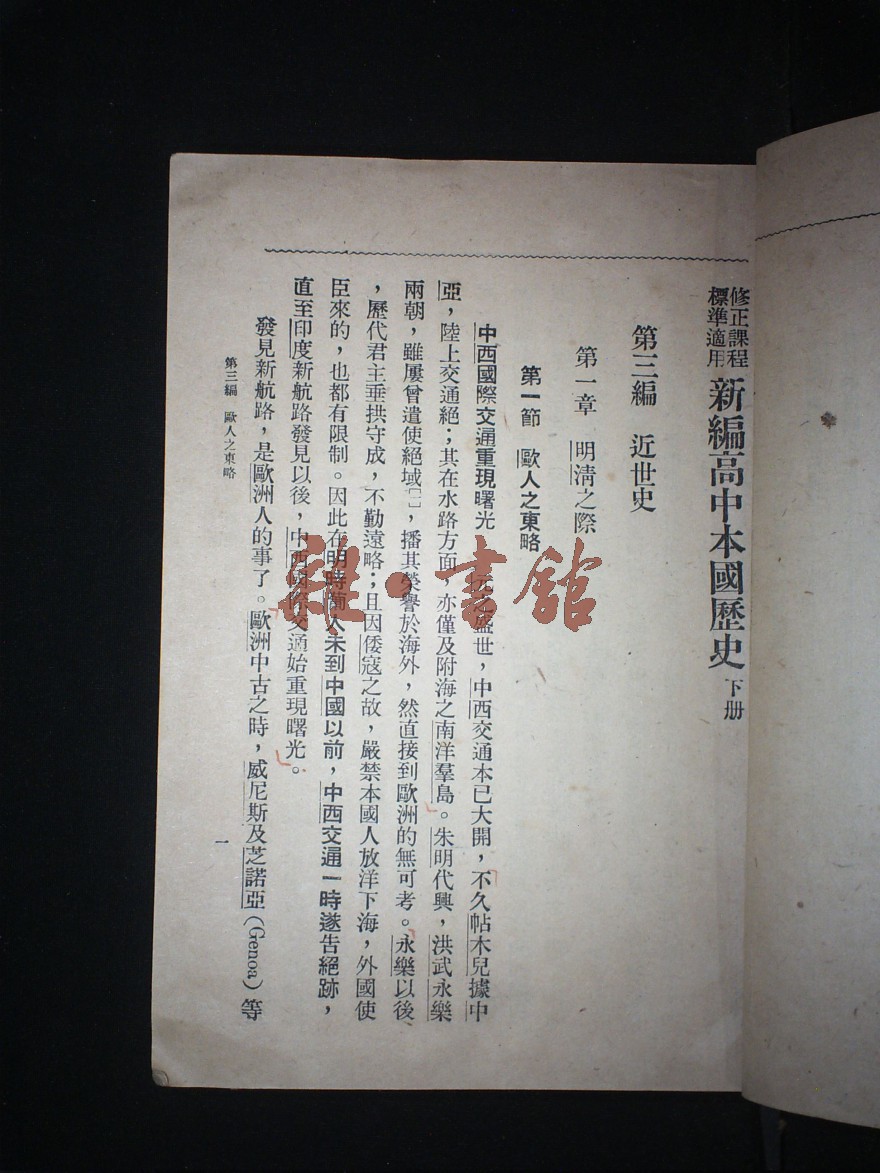 修正課程
標準適用
新編高中本國歷史 下册
第三編 近世史
第一章 明淸之際
第一節 歐人之東略
中西國際交通重現曙光 元之盛世，中西交通本已大開，不久帖木兒據中
亞，陸上交通絕；其在水路方面，亦僅及附海之南洋羣島。朱明代興，洪武永樂
兩朝，雖屢曾遣使絕域〔一〕，播其榮譽於海外，然直接到歐洲的無可考。永樂以後
，歷代君主垂拱守成，不勤遠略；且因倭寇之故，嚴禁本國人放洋下海，外國使
臣來的，也都有限制。因此在明時葡人未到中國以前，中西交通一時遂告絕跡，
直至印度新航路發見以後，中西國際交通始重現曙光。
發見新航路，是歐洲人的事了。歐洲中古之時，威尼斯及芝諾亞（Genoa）等
第三編 歐人之東略
一
雜·書館